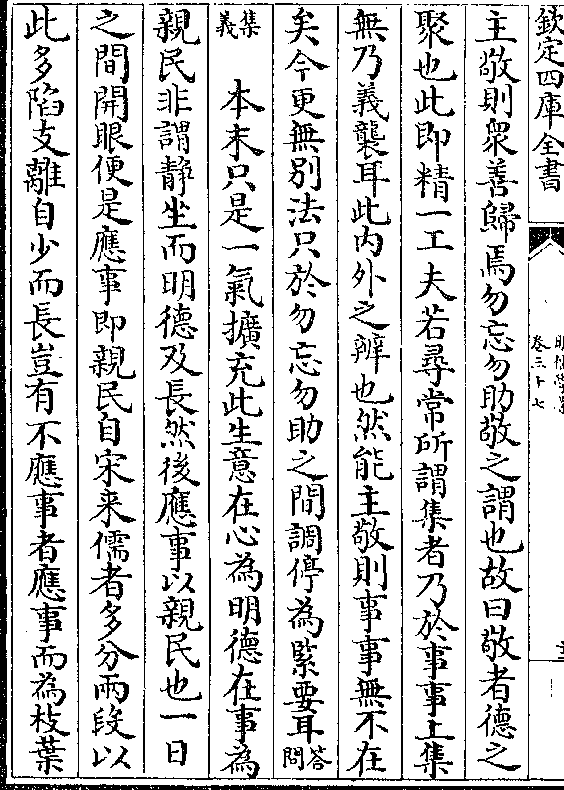 欽定四庫全書
明儒學案
卷三十七
主敬則衆善歸焉勿忘勿助敬之謂也故曰敬者德之
聚也此即精一工夫若尋常所謂集者乃於事事上集
無乃義襲耳此内外之辨也然能主敬則事事無不在
矣今更無别法只於勿忘勿助之間調停為緊要耳答問
集義
本末只是一氣擴充此生意在心為明德在事為
親民非謂静坐而明德及長然後應事以親民也一日
之間開眼便是應事即親民自宋来儒者多分兩段以
此多陷支離自少而長豈有不應事者應事而為枝葉